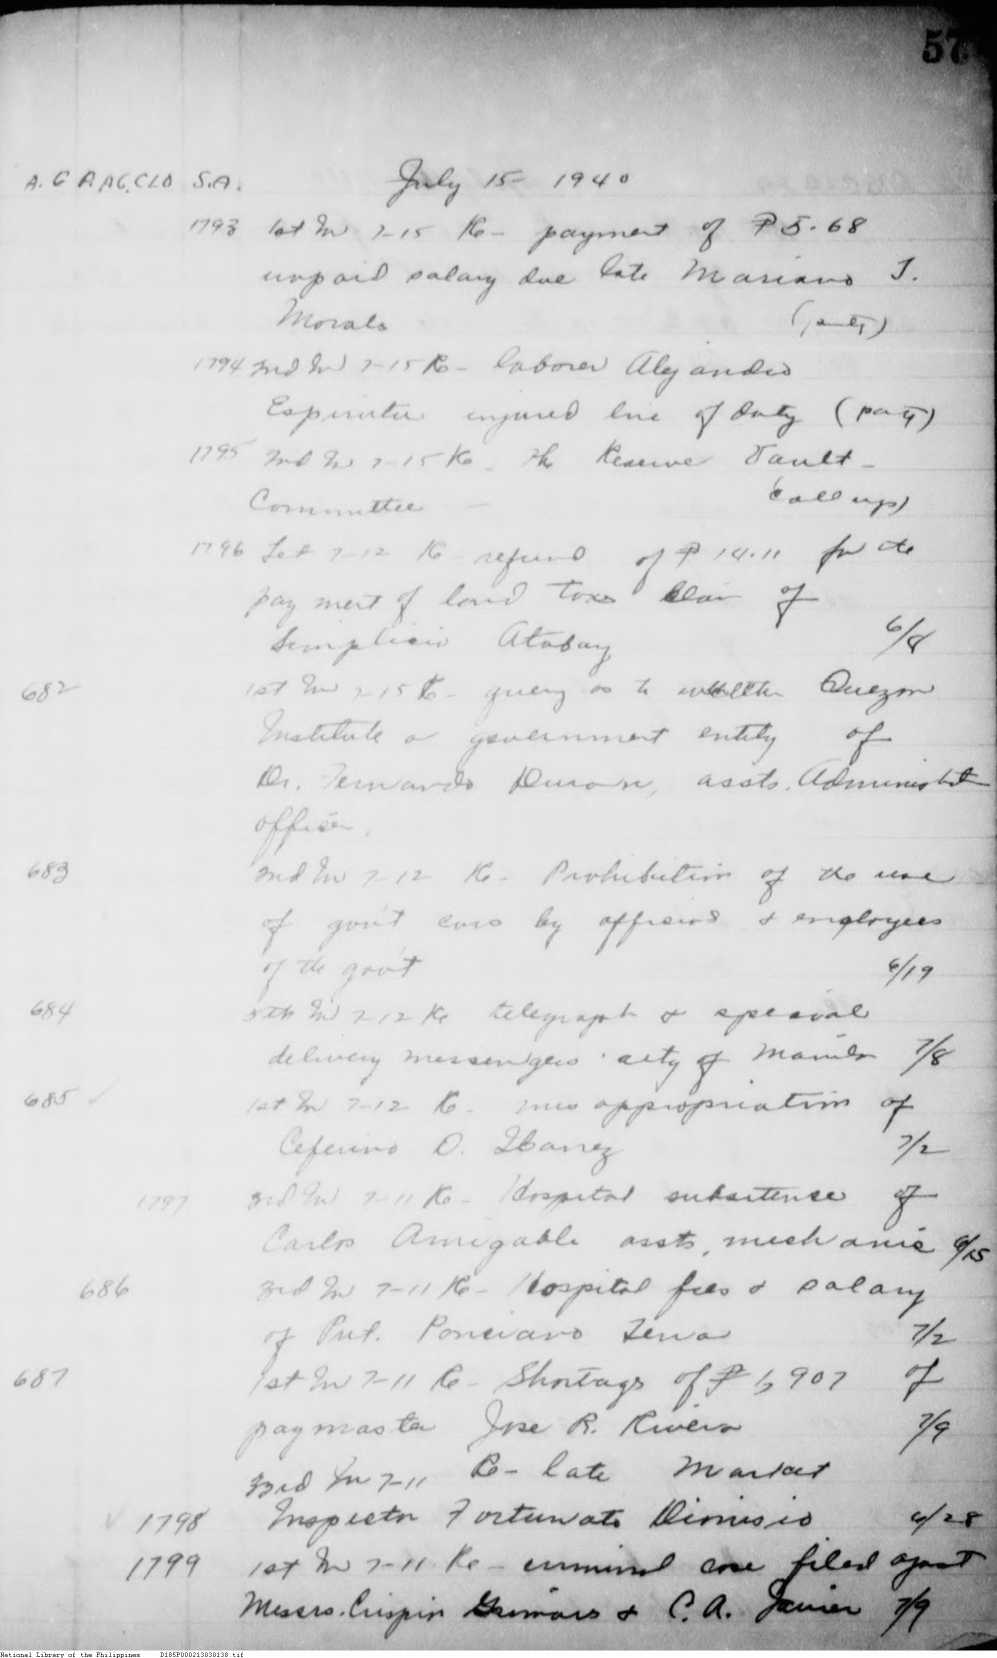 57
A.G. A.AG.CLD S.A. July 15 1940
1793 1st In 7-15 Re- payment of ₱5.68
unpaid salary due late Mariano J.
Morals (party)
1794 2nd In 7-15 Re- laborer Alejandro
Espiritu injured line of duty (party)
1795 2nd In 7-15 Re- the Reserve Vault
Committee - (all ups)
1796 Let 7-12 Re refund of ₱14.11 for the
payment of land taxes of
Simplicio Atabay 6/8
682 1st In 7-15 Re- query as to whether Quezon
Institute a government entity of
Dr. Fernando Duran, assts. Administ
officer.
683 2nd In 7-12 Re- Prohibition of the use
of gov't cars by officers & employees
of the gov't 6/19
684 5th In 7-12 Re telegraph & special
delivery messengers city of Manila 7/8
685 1st In 7-12 Re- misappropriation of
Ceferino O. Ibanez 7/2
1797 3rd In 7-11 Re- Hospital subsitense of
Carlos Amigable assts, mechanic 6/15
686 3rd In 7-11 Re- Hospital fees & salary
of Pvt. Ponciano 7/2
687 1st In 7-11 Re- Shortage of ₱1,907 of
paymaster Jose R. Rivera 7/9
3rd In 7-11 Re- late Market
1798 Inspector Fortunato Dionisio 6/28
1799 1st In 7-11 Re- criminal case filed against
Messrs. Crispin & C.A. Javier 7/9
National Library of the Philippines D185P000213830138.tif